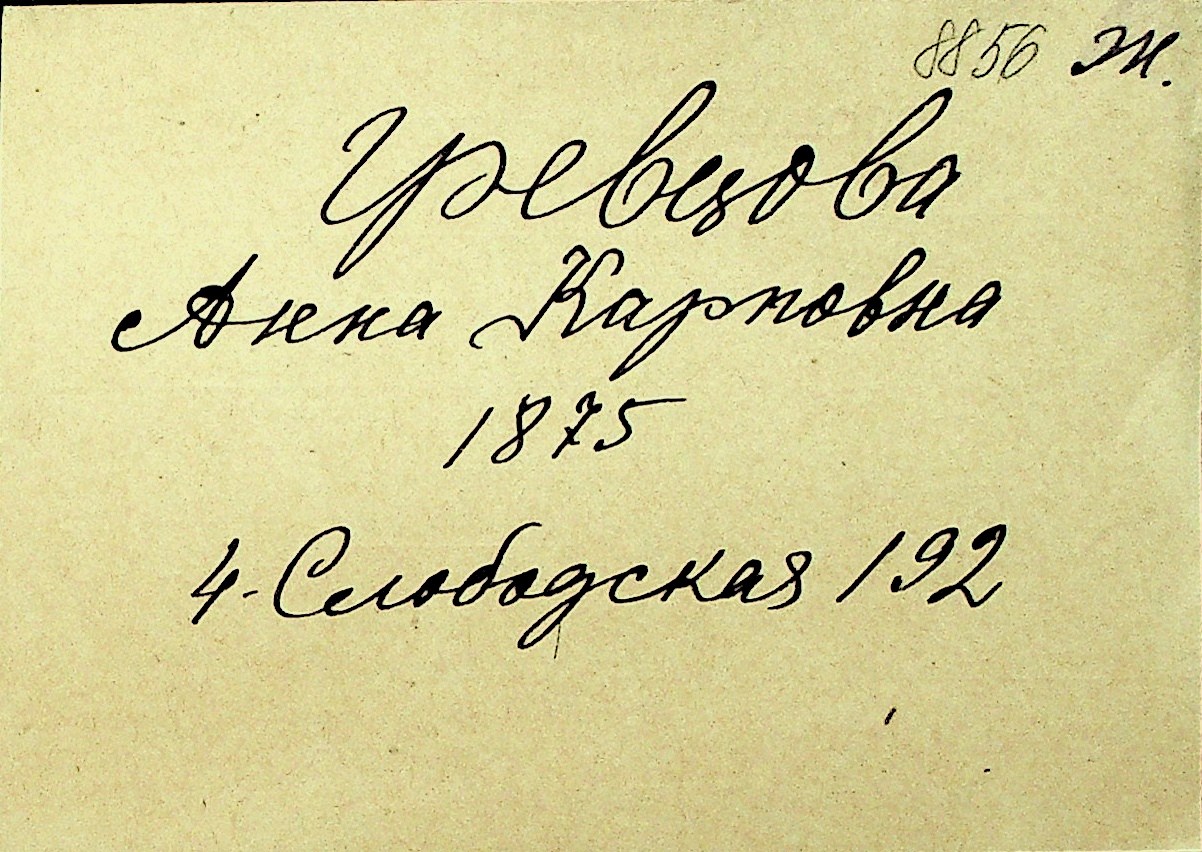 8856 Ж.
Гревцова
Анна Карповна
1875
4-Слободская 192